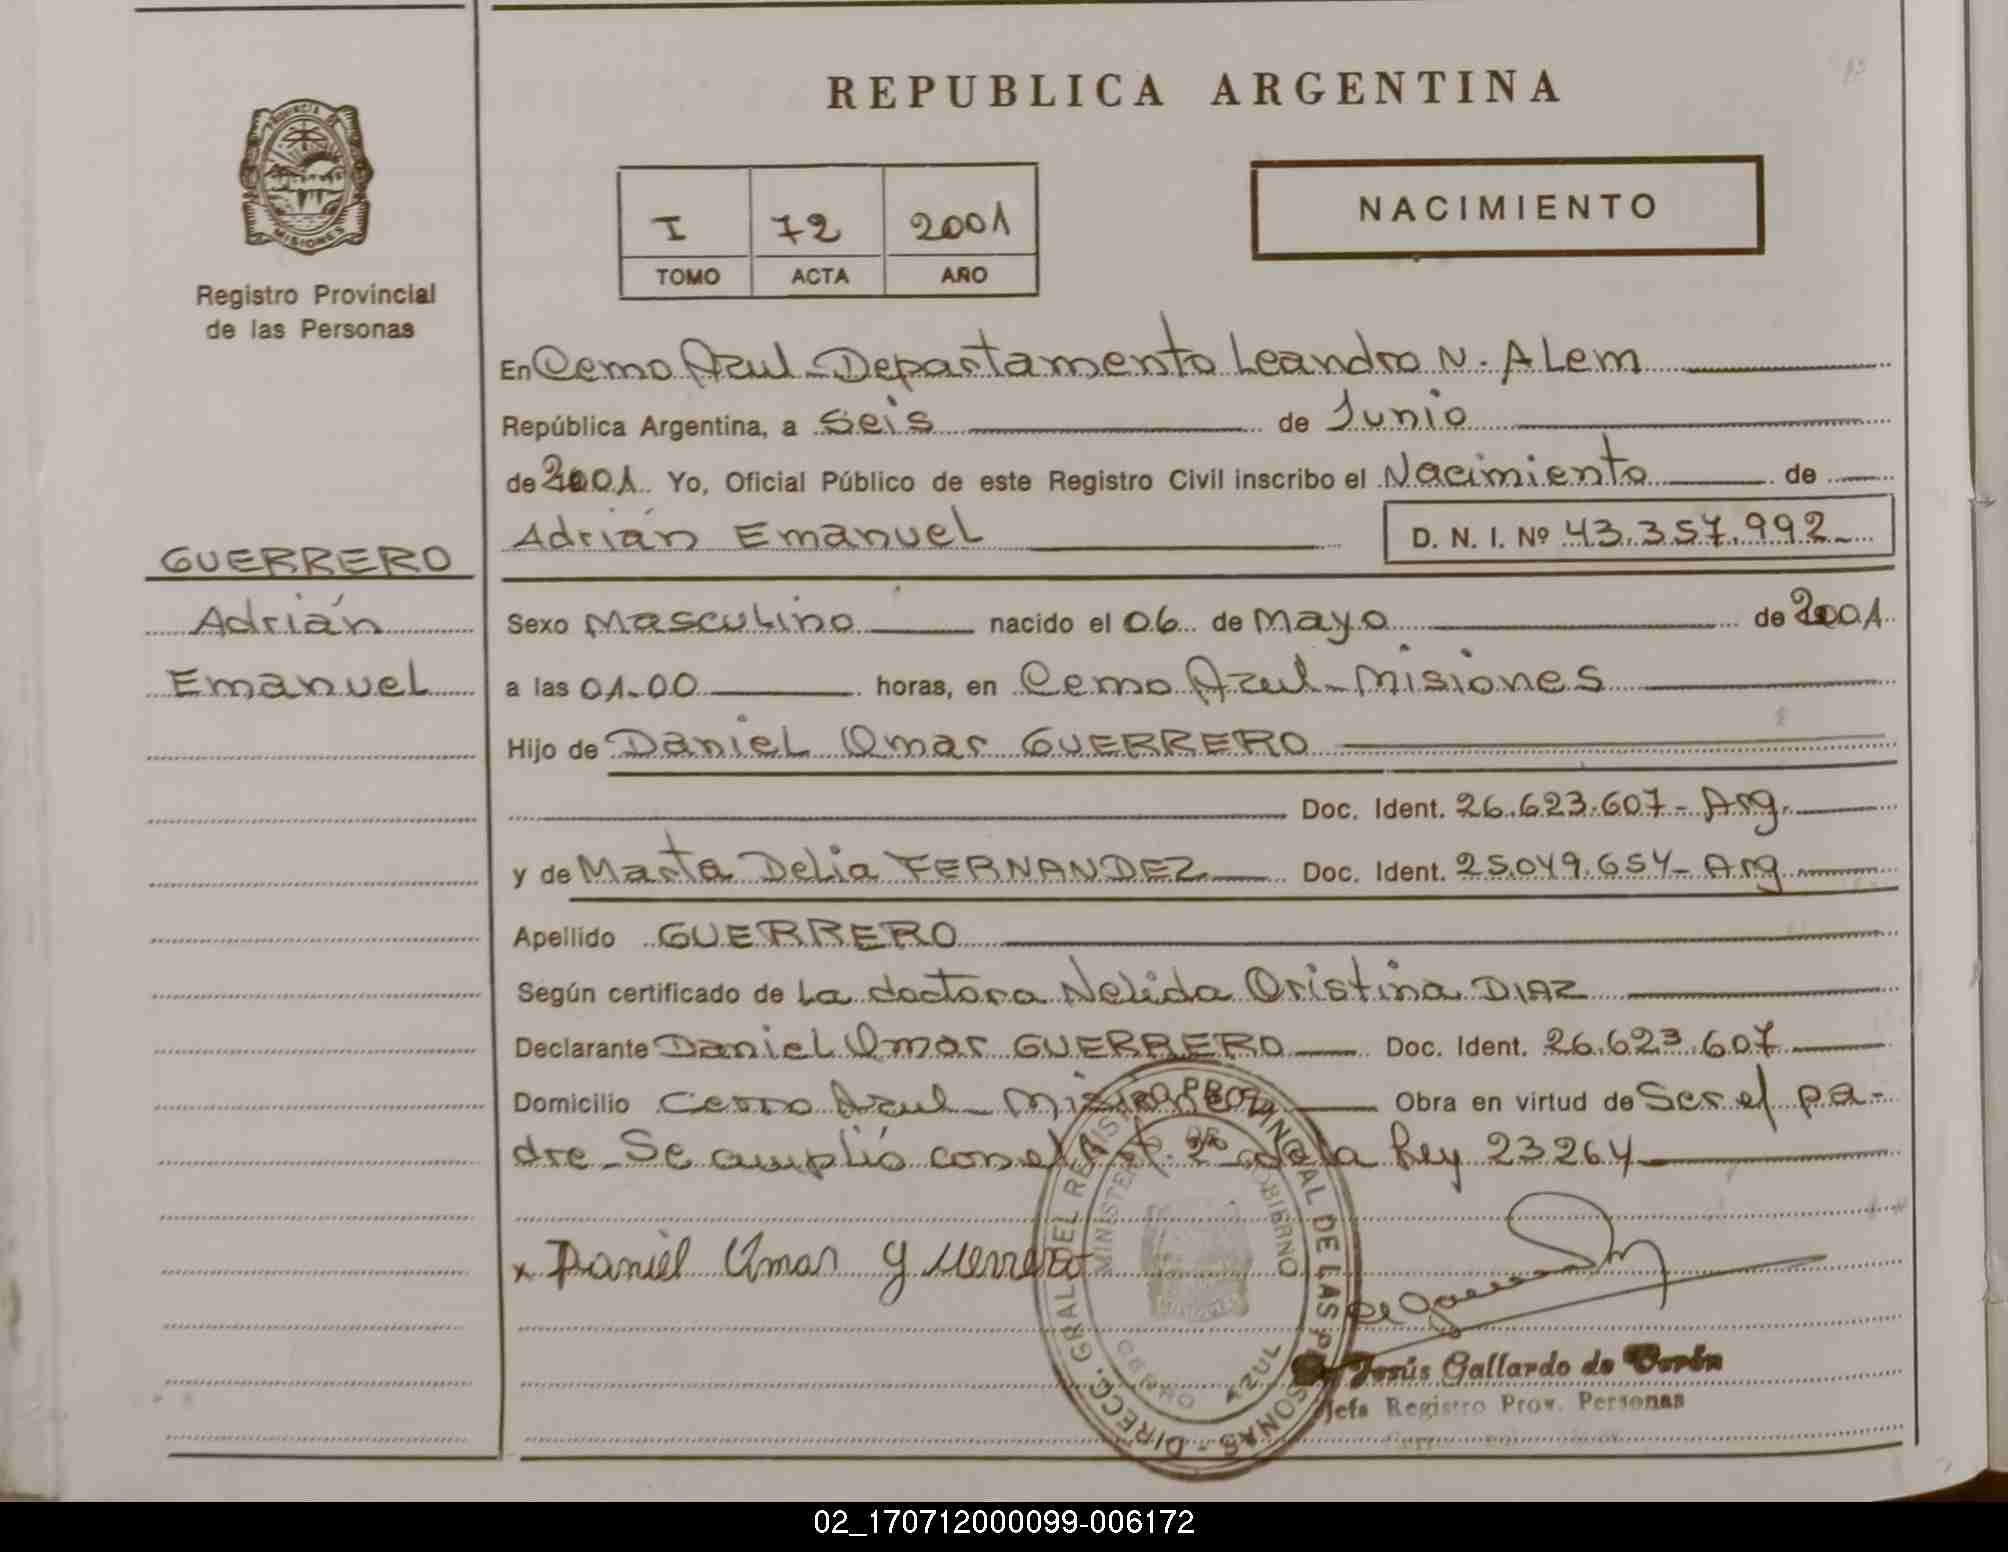 REPUBLICA ARGENTINA
PROVINCIA DE
MISIONES
Registro Provincial
de las Personas
I 72 2001
TOMO ACTA AÑO
NACIMIENTO
En Cerro Azul - Departamento Leandro N. Alem
República Argentina, a seis de Junio
de 2001. Yo, Oficial Público de este Registro Civil inscribo el Nacimiento de
Adrián Emanuel D. N. I. Nº 43.357.992
GUERRERO
Adrián
Emanuel
Sexo Masculino nacido el 06 de Mayo de 2001
a las 01-00 horas, en Cerro Azul - Misiones
Hijo de Daniel Omar GUERRERO
Doc. Ident. 26.623.607 - Arg.
y de Marta Delia FERNANDEZ Doc. Ident. 25.049.654 - Arg
Apellido GUERRERO
Según certificado de La doctora Nelida Cristina DIAZ
Declarante Daniel Omar GUERRERO Doc. Ident. 26.623.607
Domicilio Cerro Azul - Misiones Obra en virtud de Ser el pa-
dre - Se amplió con el Art. 2º de la Ley 23264
x Daniel Omar Guerrero
DIRECC. GRAL DEL REGISTRO PROVINCIAL DE LAS PERSONAS -
MINISTERIO DE GOBIERNO
CERRO AZUL
Jesús Gallardo de Verón
Jefa Registro Prov. Personas
02_170712000099-006172